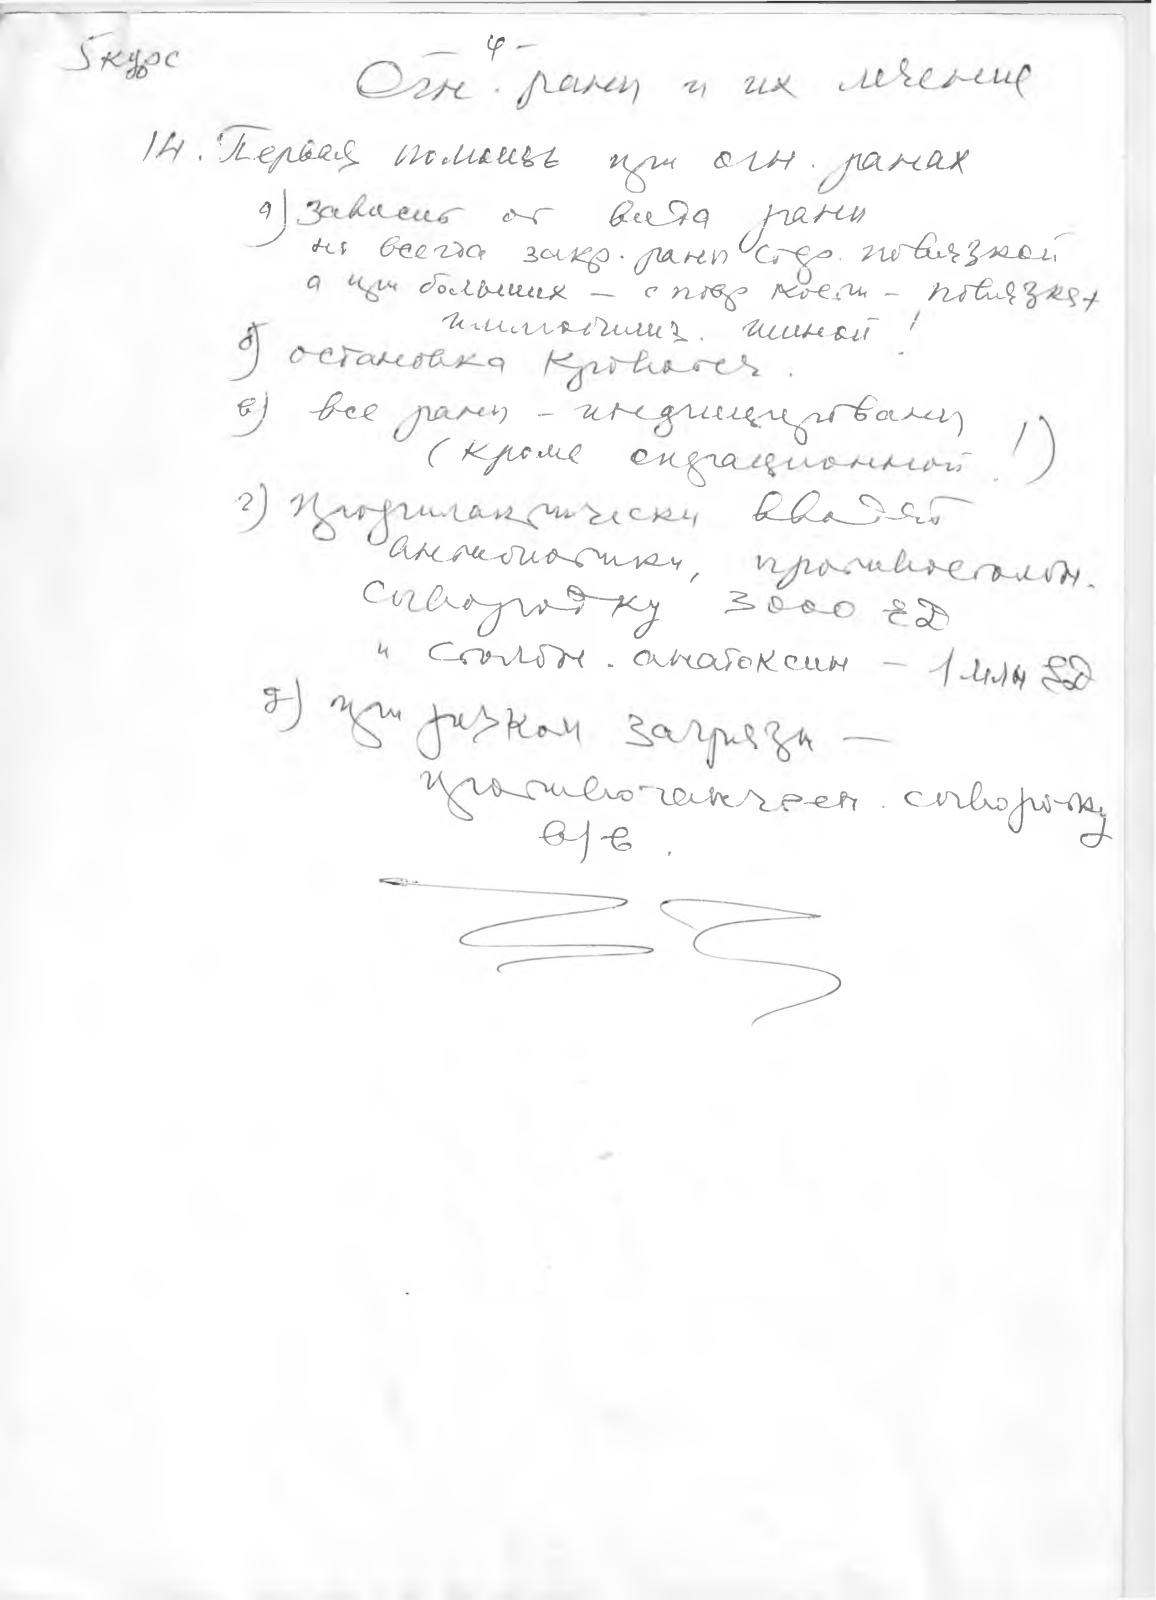 5 курс
- 4 -
Огн. раны и их лечение
14. Первая помощь при огн. ранах
а) зависит от вида раны
но всегда закр. раны повязкой
а при больших – с повр кости – повязка +
иммобилиз. шиной!
б) остановка кровотеч.
в) все раны – инфицированы
(кроме операционной!)
г) профилактически вводят
антибиотики, противостолбн.
сыворотку 3000 ЕД
и столбн. анатоксин – 1 млн ЕД
д) при резком загрязн –
противогангрен. сыворотку
в/в.